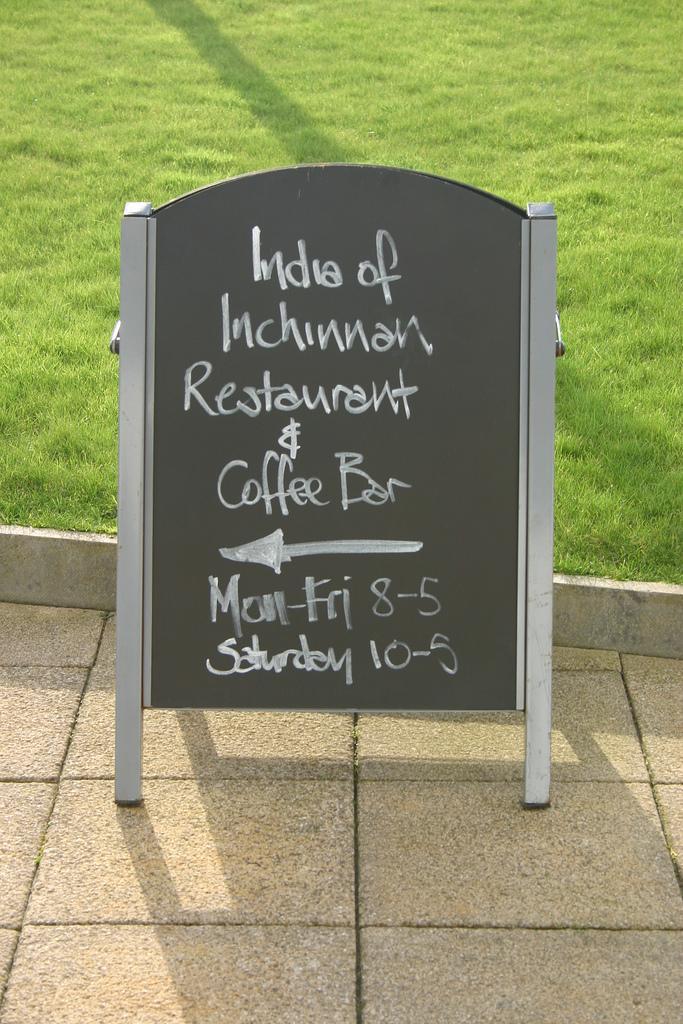 India of
Inchinnan
Restaurant
&
Coffee Bar
Mon-Fri 8-5
Saturday 10-5